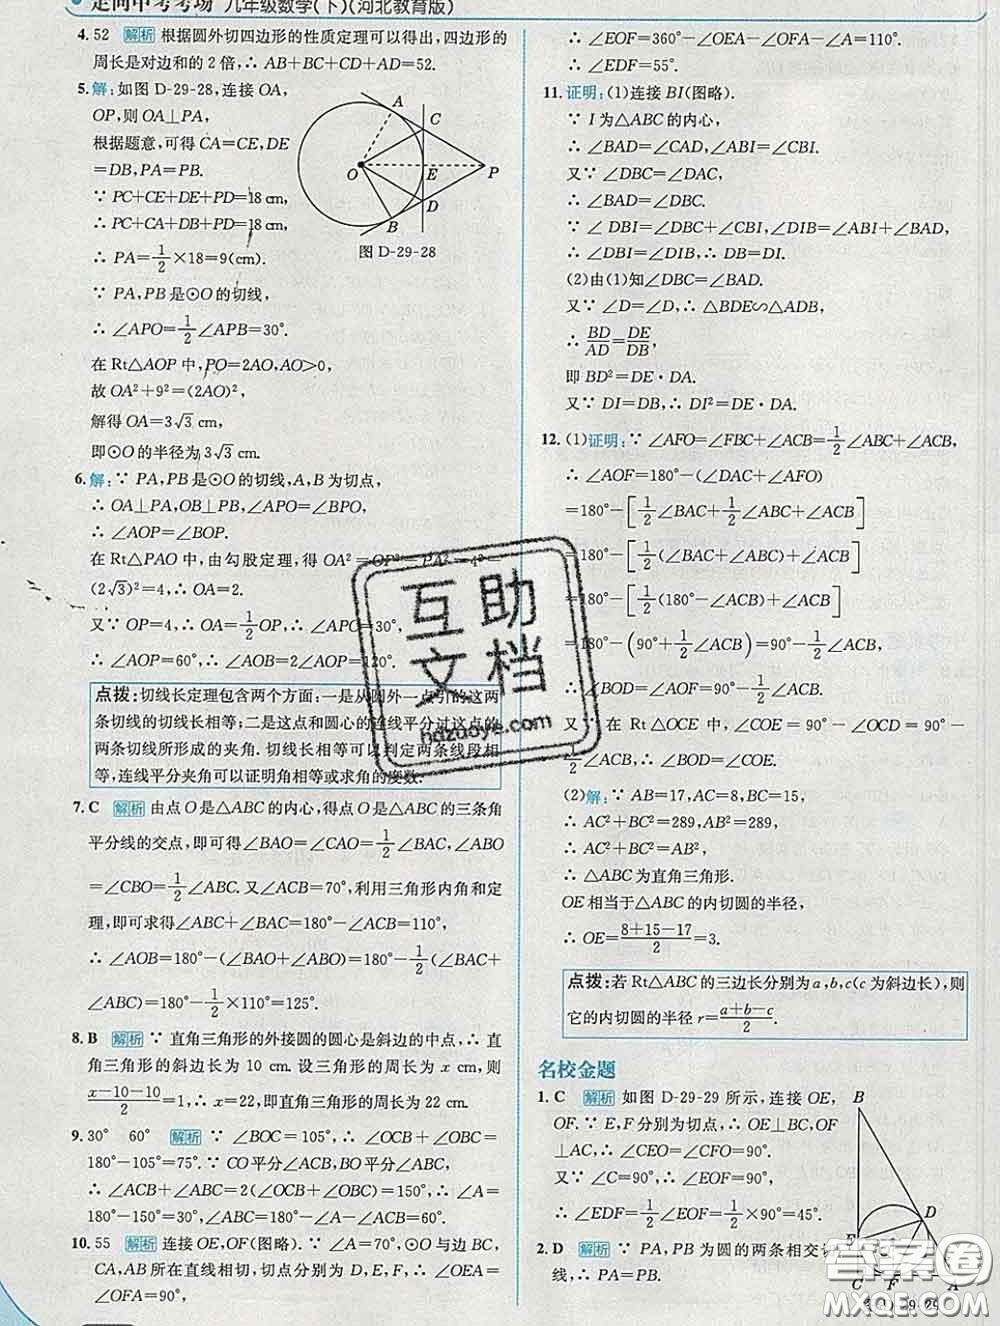 走向中考考场 九年级数学(下)(河北教育版)
4. 52 解析 根据圆外切四边形的性质定理可以得出,四边形的
周长是对边和的2倍,∴ AB+BC+CD+AD=52.
5. 解:如图 D-29-28,连接 OA,
OP,则 OA⊥PA,
根据题意,可得 CA=CE,DE
=DB,PA=PB.
∵ PC+CE+DE+PD=18 cm,
∴ PC+CA+DB+PD=18 cm,
∴ PA=1/2×18=9(cm).
∵ PA,PB是⊙O的切线,
∴ ∠APO=1/2∠APB=30°.
在 Rt△AOP 中,PO=2AO,AO>0,
故 OA²+9²=(2AO)²,
解得 OA=3√3 cm,
即⊙O的半径为 3√3 cm.
A
C
O
E
P
D
B
图 D-29-28
6. 解:∵ PA,PB是⊙O的切线,A,B为切点,
∴ OA⊥PA,OB⊥PB,∴ ∠APO=∠BPO.
∴ ∠AOP=∠BOP.
在 Rt△PAO 中,由勾股定理,得 OA²=OP²-PA²=4²-
(2√3)²=4,∴ OA=2.
又∵ OP=4,∴ OA=1/2OP,∴ ∠APO=30°,
∴ ∠AOP=60°,∴ ∠AOB=2∠AOP=120°.
点拨:切线长定理包含两个方面:一是从圆外一点引的这两
条切线的切线长相等;二是这点和圆心的连线平分过这点的
两条切线所形成的夹角.切线长相等可以判定两条线段相
等,连线平分夹角可以证明角相等或求角的度数.
7. C 解析 由点O是△ABC的内心,得点O是△ABC的三条角
平分线的交点,即可得∠BAO=∠CAO=1/2∠BAC,∠ABO
=∠CBO=1/2∠ABC.又∠ACB=70°,利用三角形内角和定
理,即可求得∠ABC+∠BAC=180°-∠ACB=110°,
∴ ∠AOB=180°-(∠BAO+∠ABO)=180°-1/2(∠BAC+
∠ABC)=180°-1/2×110°=125°.
8. B 解析 ∵ 直角三角形的外接圆的圆心是斜边的中点,∴ 直
角三角形的斜边长为 10 cm. 设三角形的周长为 x cm,则
(x-10-10)/2=1,∴ x=22,即直角三角形的周长为 22 cm.
9. 30° 60° 解析 ∵ ∠BOC=105°,∴ ∠OCB+∠OBC=
180°-105°=75°.∵ CO平分∠ACB,BO平分∠ABC,
∴ ∠ACB+∠ABC=2(∠OCB+∠OBC)=150°,∴ ∠A=
180°-150°=30°,∠ABC=180°-∠A-∠ACB=60°.
10. 55 解析 连接OE,OF(图略).∵ ∠A=70°,⊙O与边BC,
CA,AB所在直线相切,切点分别为D,E,F,∴ ∠OEA=
∠OFA=90°,
∴ ∠EOF=360°-∠OEA-∠OFA-∠A=110°.
∴ ∠EDF=55°.
11. 证明:(1)连接BI(图略).
∵ I为△ABC的内心,
∴ ∠BAD=∠CAD,∠ABI=∠CBI.
又∵ ∠DBC=∠DAC,
∴ ∠BAD=∠DBC.
又∵ ∠DBI=∠DBC+∠CBI,∠DIB=∠ABI+∠BAD,
∴ ∠DBI=∠DIB,∴ DB=DI.
(2)由(1)知∠DBC=∠BAD.
又∵ ∠D=∠D,∴ △BDE∽△ADB,
∴ BD/AD=DE/DB,
即 BD²=DE·DA.
又∵ DI=DB,∴ DI²=DE·DA.
12. (1)证明:∵ ∠AFO=∠FBC+∠ACB=1/2∠ABC+∠ACB,
∴ ∠AOF=180°-(∠DAC+∠AFO)
=180°-[1/2∠BAC+1/2∠ABC+∠ACB]
=180°-[1/2(∠BAC+∠ABC)+∠ACB]
=180°-[1/2(180°-∠ACB)+∠ACB]
=180°-(90°+1/2∠ACB)=90°-1/2∠ACB,
∴ ∠BOD=∠AOF=90°-1/2∠ACB.
又∵ 在 Rt△OCE 中,∠COE=90°-∠OCD=90°-
1/2∠ACB,∴ ∠BOD=∠COE.
(2)解:∵ AB=17,AC=8,BC=15,
∴ AC²+BC²=289,AB²=289,
∴ AC²+BC²=AB²,
∴ △ABC为直角三角形.
OE相当于△ABC的内切圆的半径,
∴ OE=(8+15-17)/2=3.
点拨:若 Rt△ABC 的三边长分别为a,b,c(c为斜边长),则
它的内切圆的半径 r=(a+b-c)/2.
名校金题
1. C 解析 如图 D-29-29 所示,连接 OE,
OF.∵ E,F分别为切点,∴ OE⊥BC,OF
⊥AC,∴ ∠CEO=∠CFO=90°.
又∵ ∠C=90°,∴ ∠EOF=90°,
∴ ∠EDF=1/2∠EOF=1/2×90°=45°.
2. D 解析 ∵ PA,PB为圆的两条相交切
线,∴ PA=PB.
B
D
E
C F A
29-29
互助
文档
hdzuoye.com
答案圈
MXQE.COM